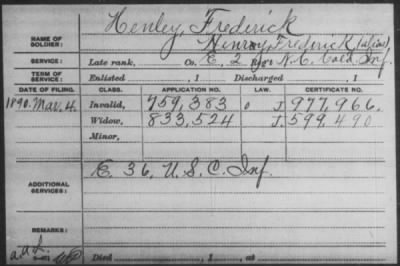 Henley, Frederick
NAME OF SOLDIER: Henroy, Frederick (alias)
SERVICE: Late rank, Co. E, 2 Reg't N.C. Cold. Inf.
TERM OF SERVICE: Enlisted , 1 Discharged , 1
DATE OF FILING. CLASS. APPLICATION NO. LAW. CERTIFICATE NO.
1890. Mar. 4. Invalid, 759,383 J. 977,966.
Widow, 833,524 J. 599,490
Minor,
E 36, U.S.C. Inf.
ADDITIONAL SERVICES:
REMARKS:
Died , 1 , at